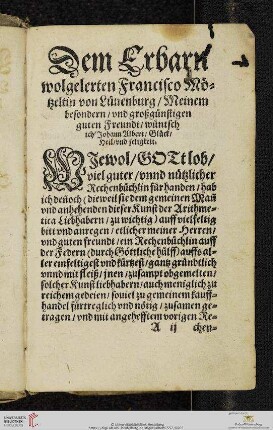 Dem Erbarn
wolgelerten Francisco Mö-
tzeltin von Lünenburg / Meinem
besondern / vnd großgünstigen
guten Freundt / wünsch
ich / Johann Albert / Glück /
Heil / vnd seligkeit.
WJewol / GOTt lob /
viel guter / vnnd nützlicher
Rechenbüchlin für handen / hab
ich deñoch / dieweil sie dem gemeinen Mañ
vnd anhehenden dieser Kunst der Arithme-
tica Liebhabern / zu wichtig / auff vielfeltig
bitt vnd anregen / etlicher meiner Herren /
vnd guten freundt / ein Rechenbüchlin auff
der Federn / durch Göttliche hülff / auffs al-
ler einfeltigest vnd kürtzest / gantz gründtlich
vnnd mit fleiß / jnen / zusampt obgemelten /
solcher Kunst liebhabern / auch meniglich zu
reichem gedeien / souiel zu gemeinem kauff-
handel fürtreglich vnd nötig / zusamen ge-
tragen / vnd mit angehefften vorigen Re-
A ij chen-